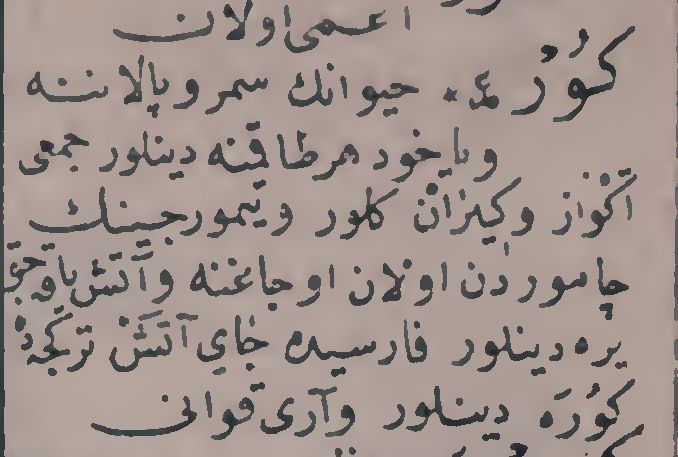 اعمى اولان
كُوْرْ ع٠ حيوانك سمر و پالاننه
وياخود هر طاقنه دينلور جمعى
اَكْوَاز وكِيْزَانْ كلور و تيمورجينك
چاموردن اولان اوجاغنه و آتش ياقه جق
يره دينلور فارسيده جَاىِ آتَشْ تركجه ده
كُوْرَه دينلور و آرى قوانى